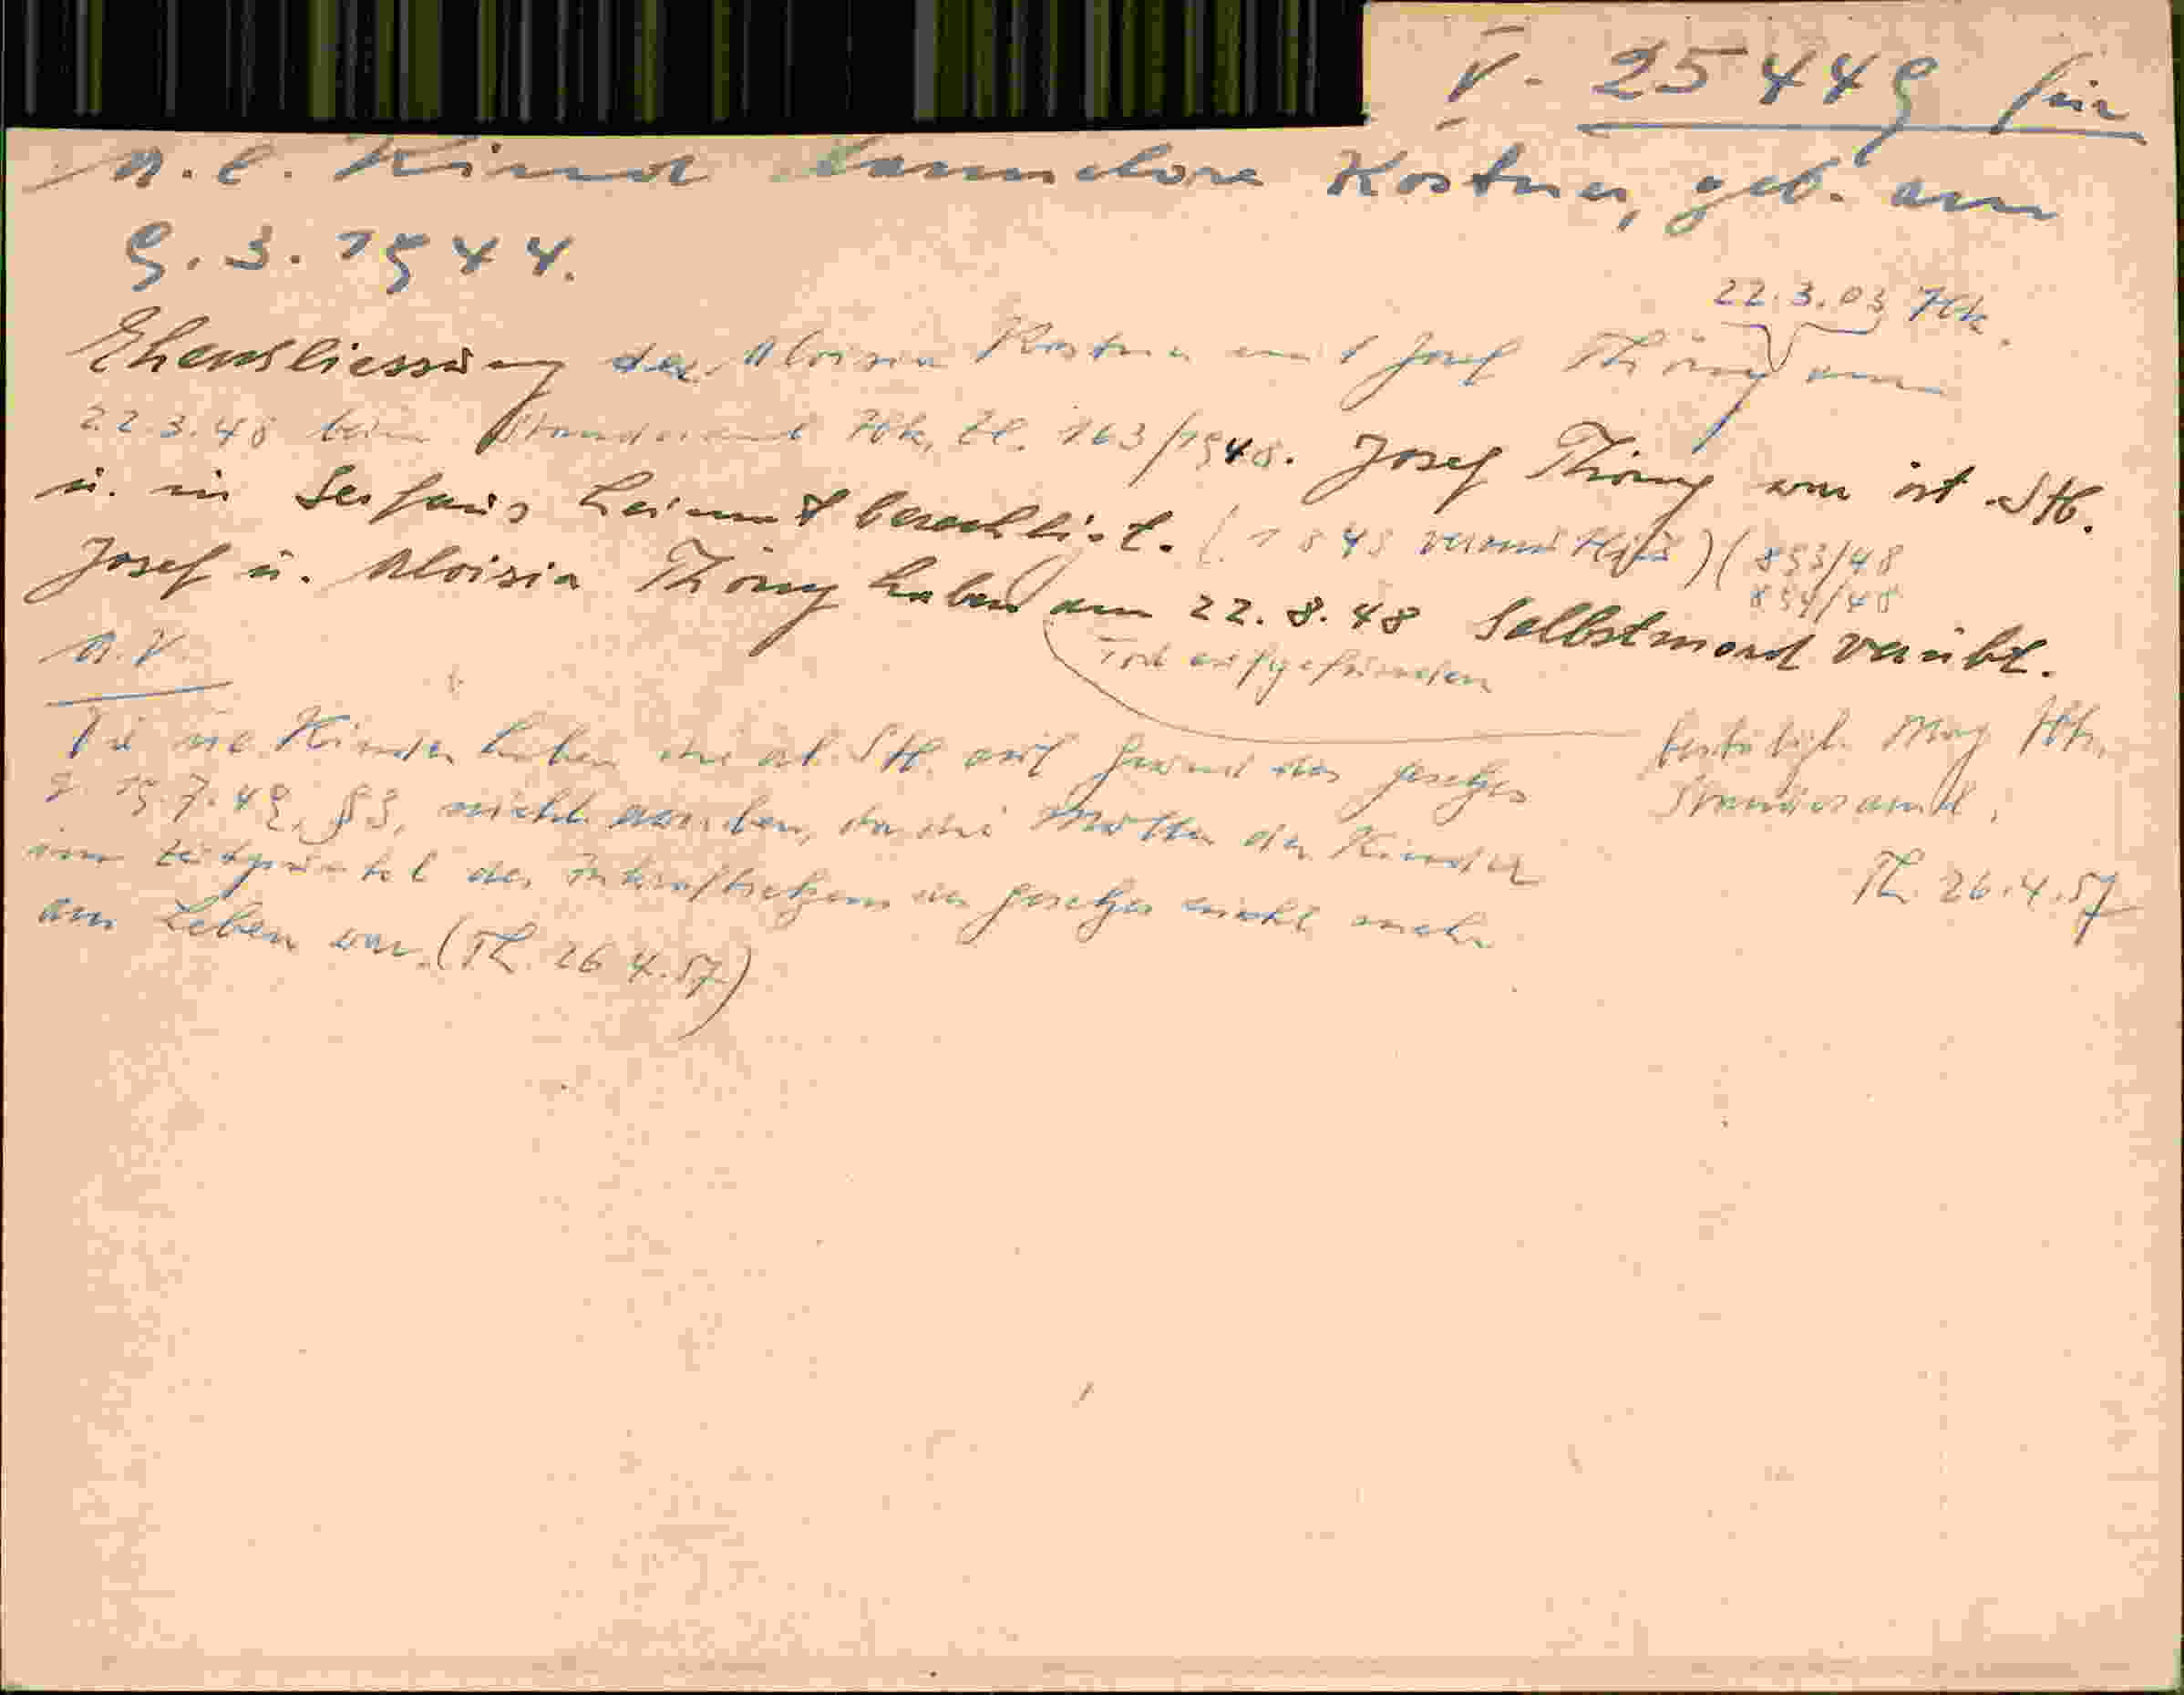 V. 25449 für
n. e. Kind Hannelore Kostner, geb. am
9.3.1944.
22.3.03 Ibk.
Eheschliessung der Aloisia Kostner mit Josef Thöny am
22.3.48 beim Standesamt Ibk, Zl. 163/1948. Josef Thöny war öst. Stb.
u. in Serfaus heimatberechtigt. (1948) (893/48
894/48
Josef u. Aloisia Thöny haben am 22.8.48 Selbstmord verübt.
Tod aufgefunden
A.V.
Die ne. Kinder haben die öst. Stb. auf Grund des Gesetzes
v. 19.7.49, §3, nicht erworben, da die Mutter der Kinder
im Zeitpunkt des Inkrafttretens des Gesetzes nicht mehr
am Leben war. (Th. 26.4.57)
bestätigt Mag Ibk.
Standesamt.
Th. 26.4.57